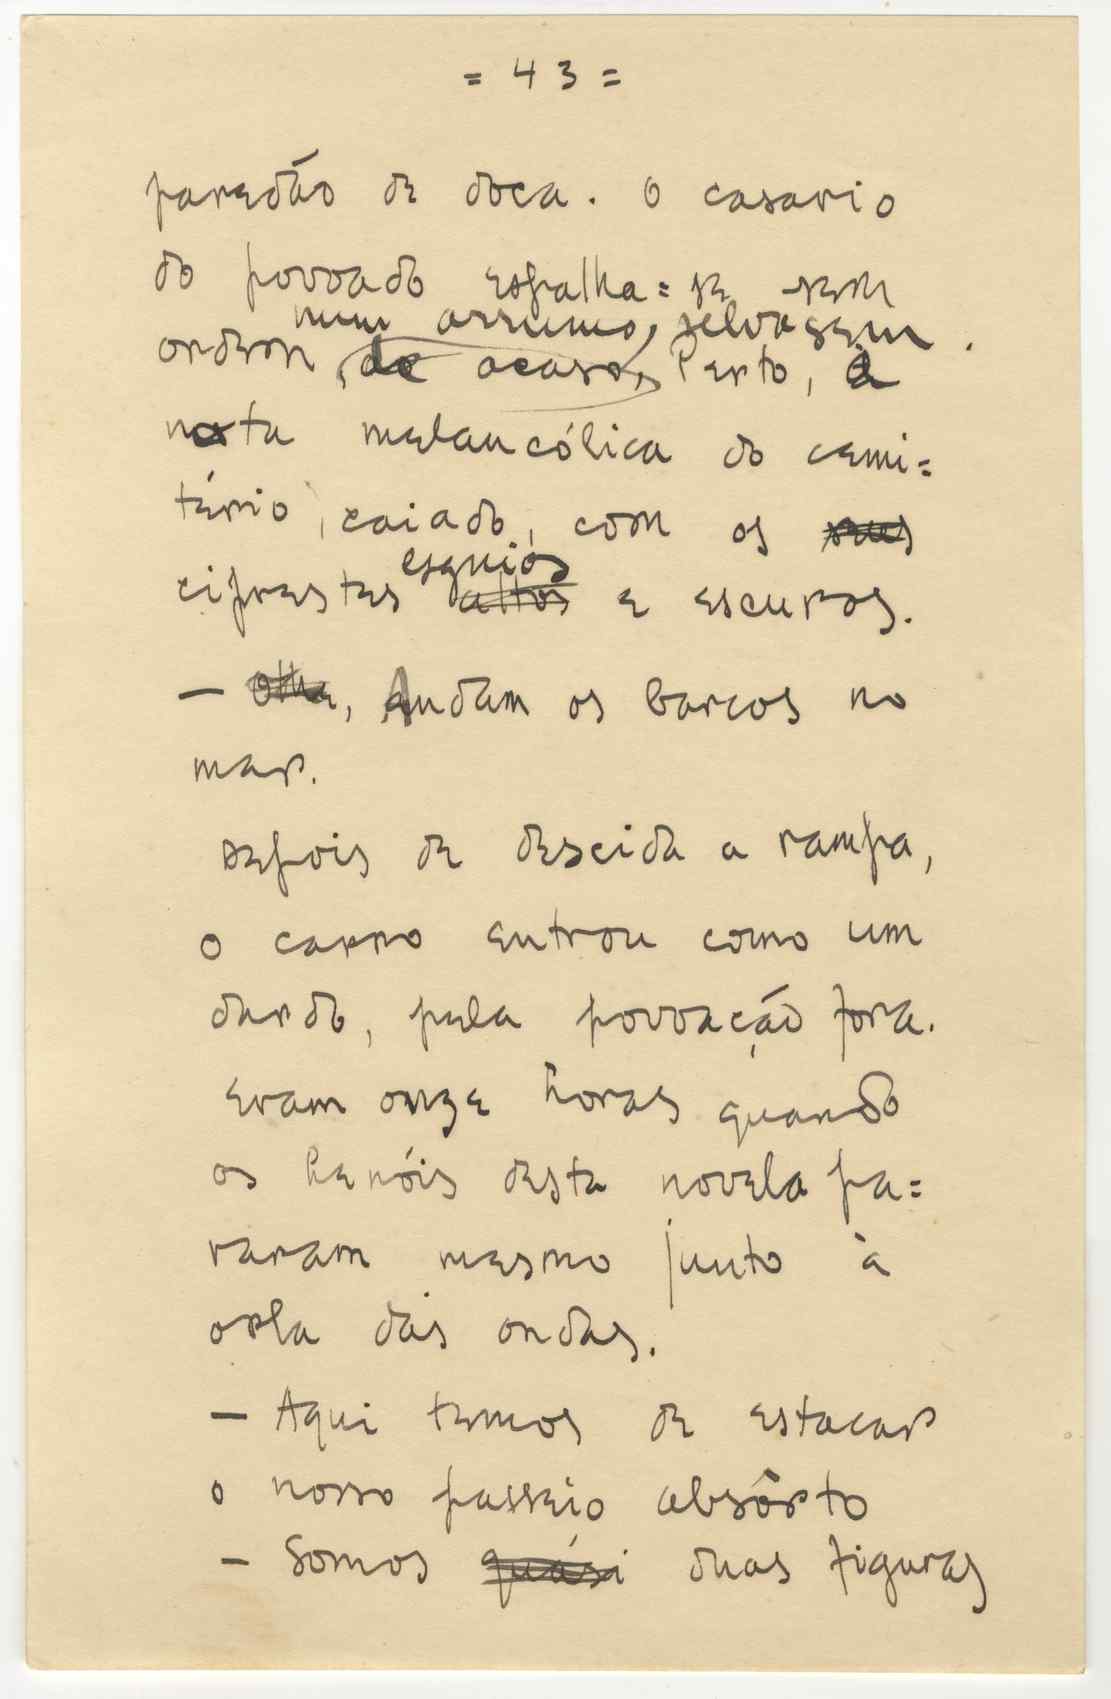 = 43 =
paredão de doca. O casario
do povoado espalha=se sem
num arrumo, selvagem.
ordem, de acaso, Perto, a
nota melancólica do cemi=
tério, caiado, com os seus
esguios
ciprestes altos e escuros.
— Olha, Andam os barcos no
mar.
Depois de descida a rampa,
o carro entrou como um
dardo, pela povoação fora.
Eram onze horas quando
os heróis desta novela pa=
raram mesmo junto à
orla das ondas.
— Aqui temos de estacar
o nosso passeio absôrto
— Somos quási duas figuras